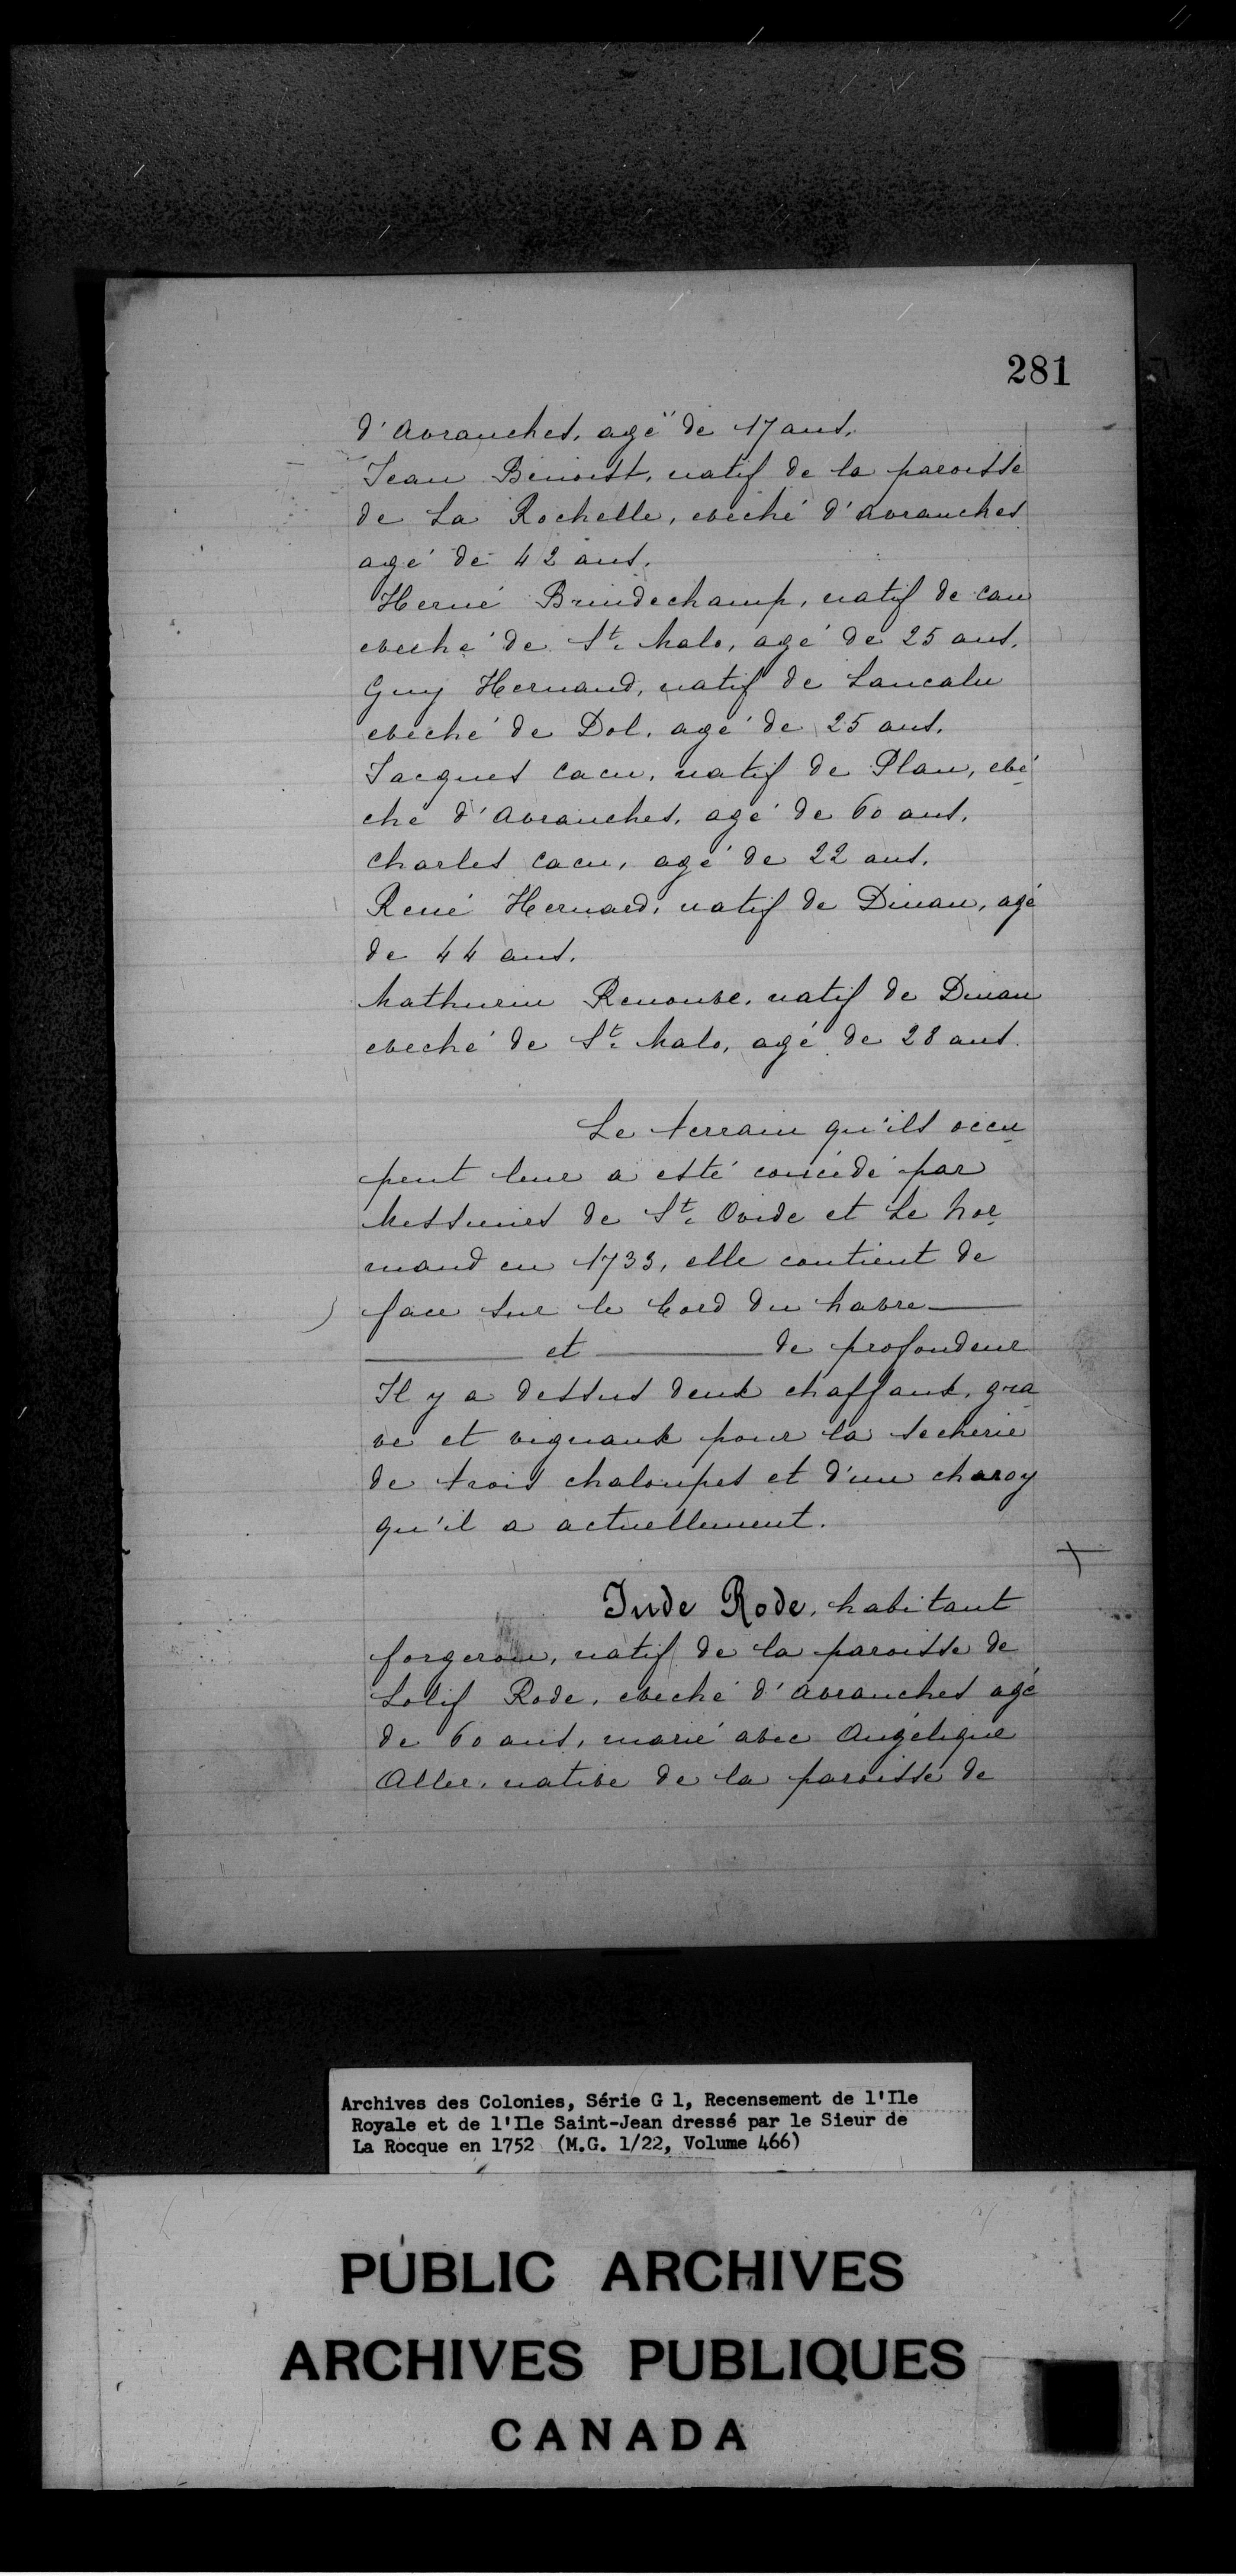 281
d'Avranches, agé de 17 ans.
Jean Benoist, natif de la paroisse
de La Rochelle, eveché d'Avranches
agé de 42 ans.
Hervé Brindechamp, natif de Cau
eveché de St. Malo, agé de 25 ans.
Guy Hernaud, natif de Lancalu
eveché de Dol, agé de 25 ans.
Jacques Cacu, natif de Plan, evé
ché d'Avranches, agé de 60 ans.
Charles Cacu, agé de 22 ans.
René Hernard, natif de Dinan, agé
de 44 ans.
Mathurin Renouve, natif de Dinan
eveché de St. Malo, agé de 28 ans.
Le terrain qu'ils occu
pent leur a esté concédé par
Messieurs de St. Ovide et Le Nor
mand en 1733, elle contient de
face sur le bord du havre
et de profondeur
Il y a dessus deux chaffaux, gra
ve et vignaux pour la secherie
de trois chaloupes et d'un charoy
qu'il a actuellement.
Jude Rode, habitant
forgeron, natif de la paroisse de
Lolif Rode, eveché d'Avranches agé
de 60 ans, marié avec Angélique
Aller, native de la paroisse de
Archives des Colonies, Série G 1, Recensement de l'Ile
Royale et de l'Ile Saint-Jean dressé par le Sieur de
La Rocque en 1752 (M.G. 1/22, Volume 466)
PUBLIC ARCHIVES
ARCHIVES PUBLIQUES
CANADA